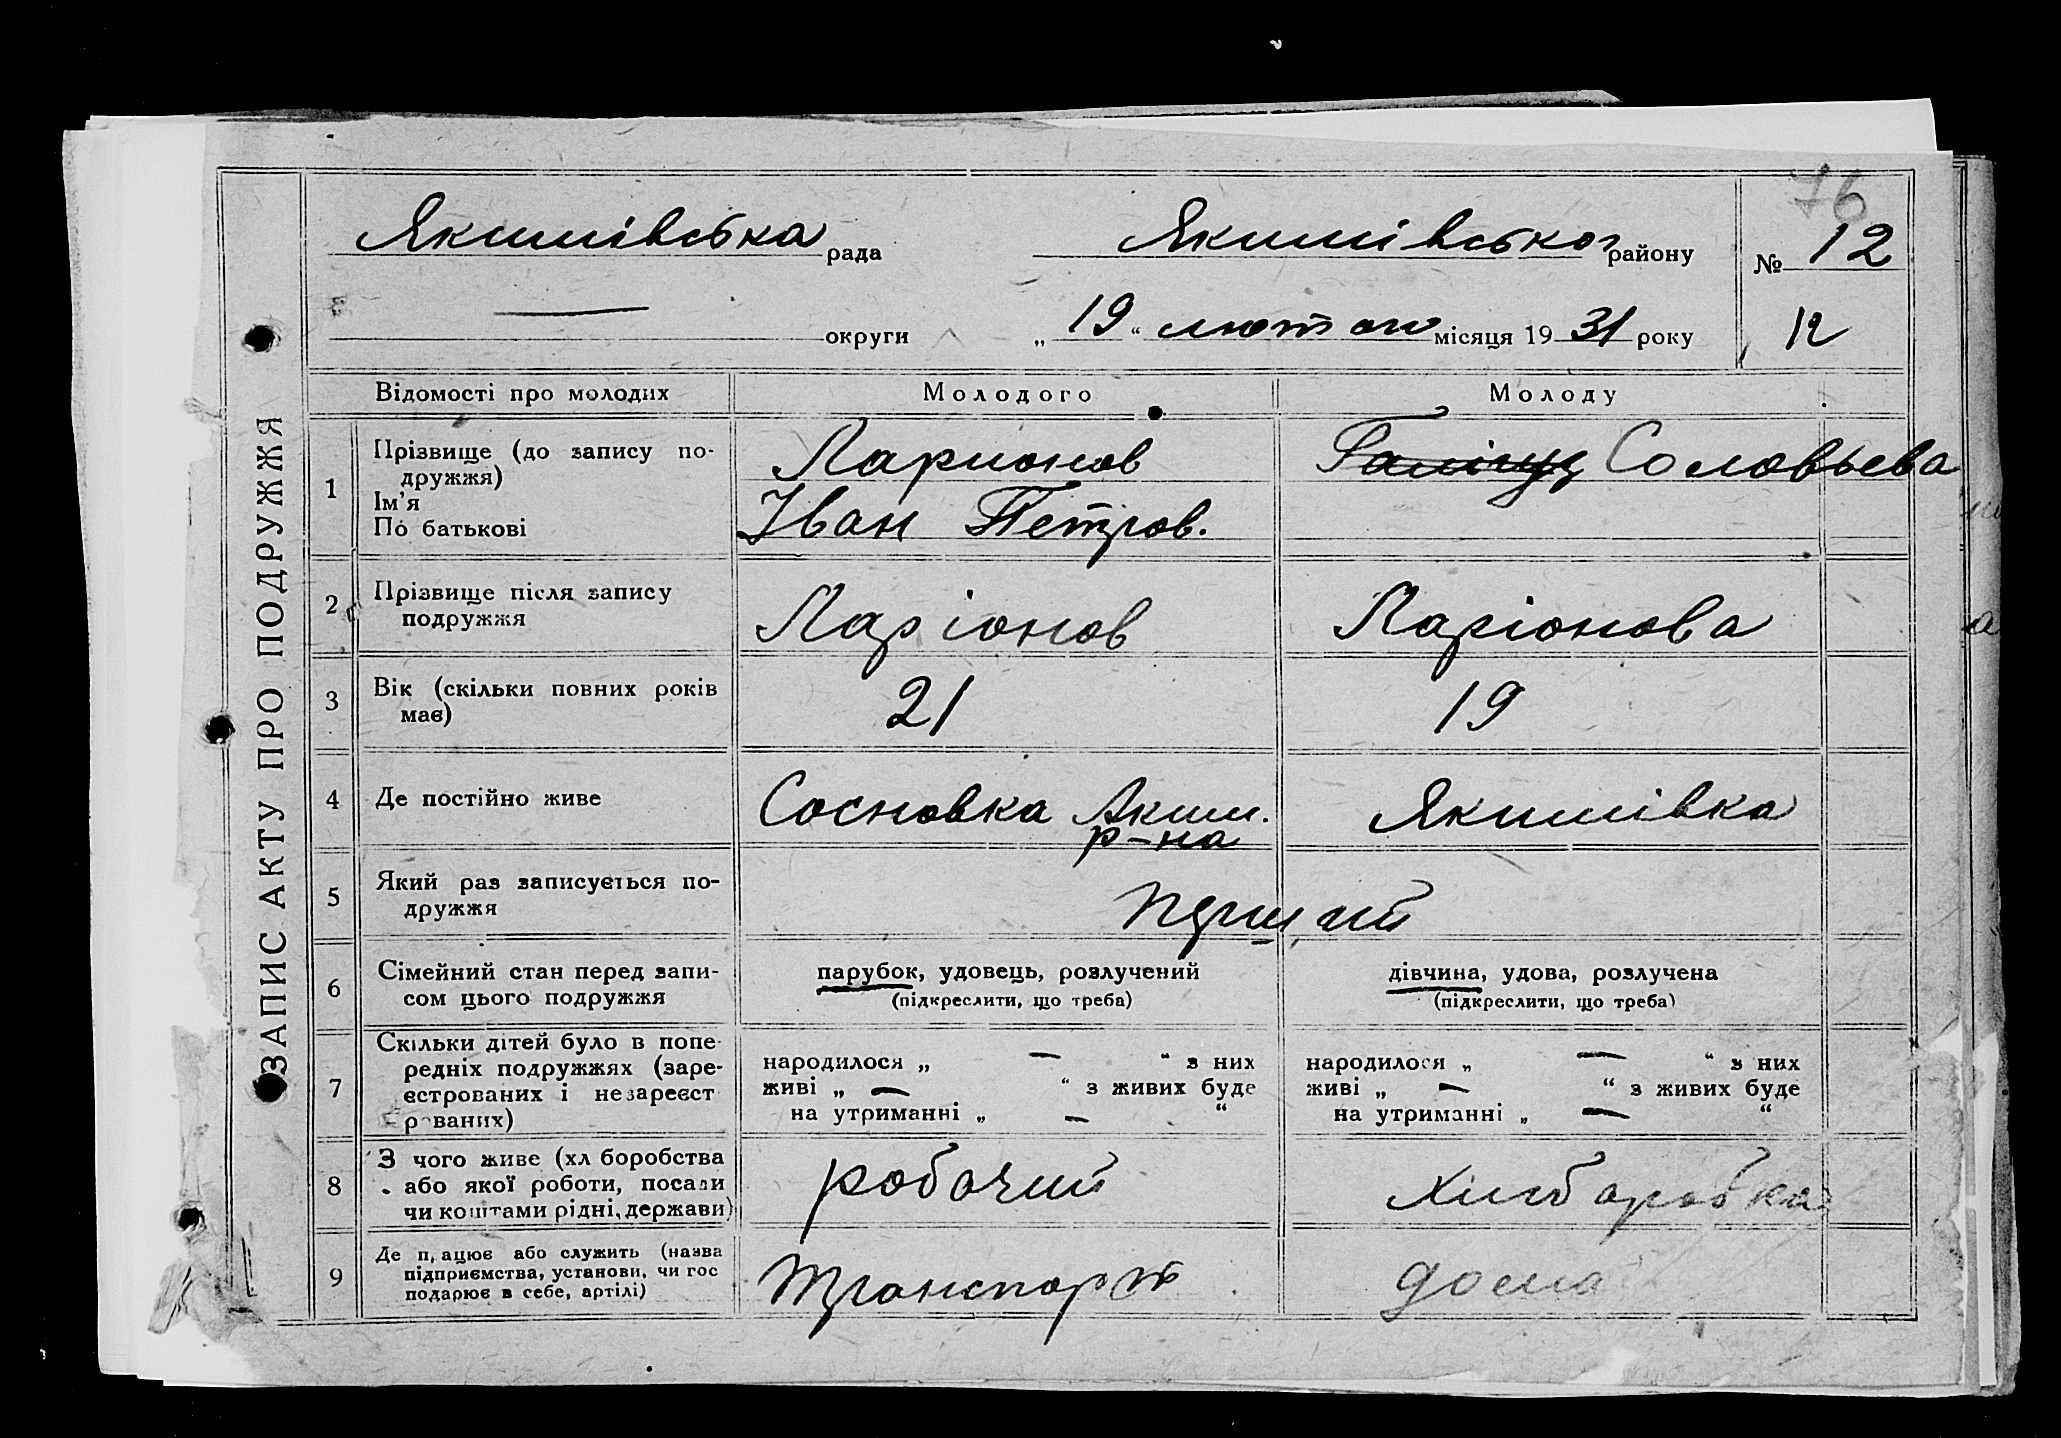 76
Якимівська рада Якимівського району № 12
округи „ 19 “ лютого місяця 19 31 року 12
ЗАПИС АКТУ ПРО ПОДРУЖЖЯ
Відомості про молодих Молодого Молоду
1 Прізвище (до запису по-
дружжя)
Ім’я
По батькові
Ларионов
Іван Петров.
Соловьева
2 Прізвище після запису
подружжя
Ларіонов Ларіонова
3 Вік (скільки повних років
має)
21 19
4 Де постійно живе
Сосновка Аким.
р-на
Якимівка
5 Який раз записується по-
дружжя
перший
6 Сімейний стан перед запи-
сом цього подружжя
парубок, удовець, розлучений
(підкреслити, що треба)
дівчина, удова, розлучена
(підкреслити, що треба)
7 Скільки дітей було в попе-
редніх подружжях (заре-
єстрованих і незареєст
рованих)
народилося „ — “ з них
живі „ — “ з живих буде
на утриманні „ — “
народилося „ — “ з них
живі „ — “ з живих буде
на утриманні „ — “
8 З чого живе (хл боробства
або якої роботи, посади
чи коштами рідні, держави)
робочий
9 Де працює або служить (назва
підприємства, установи, чи гос
подарює в себе, артілі)
Транспорт дома